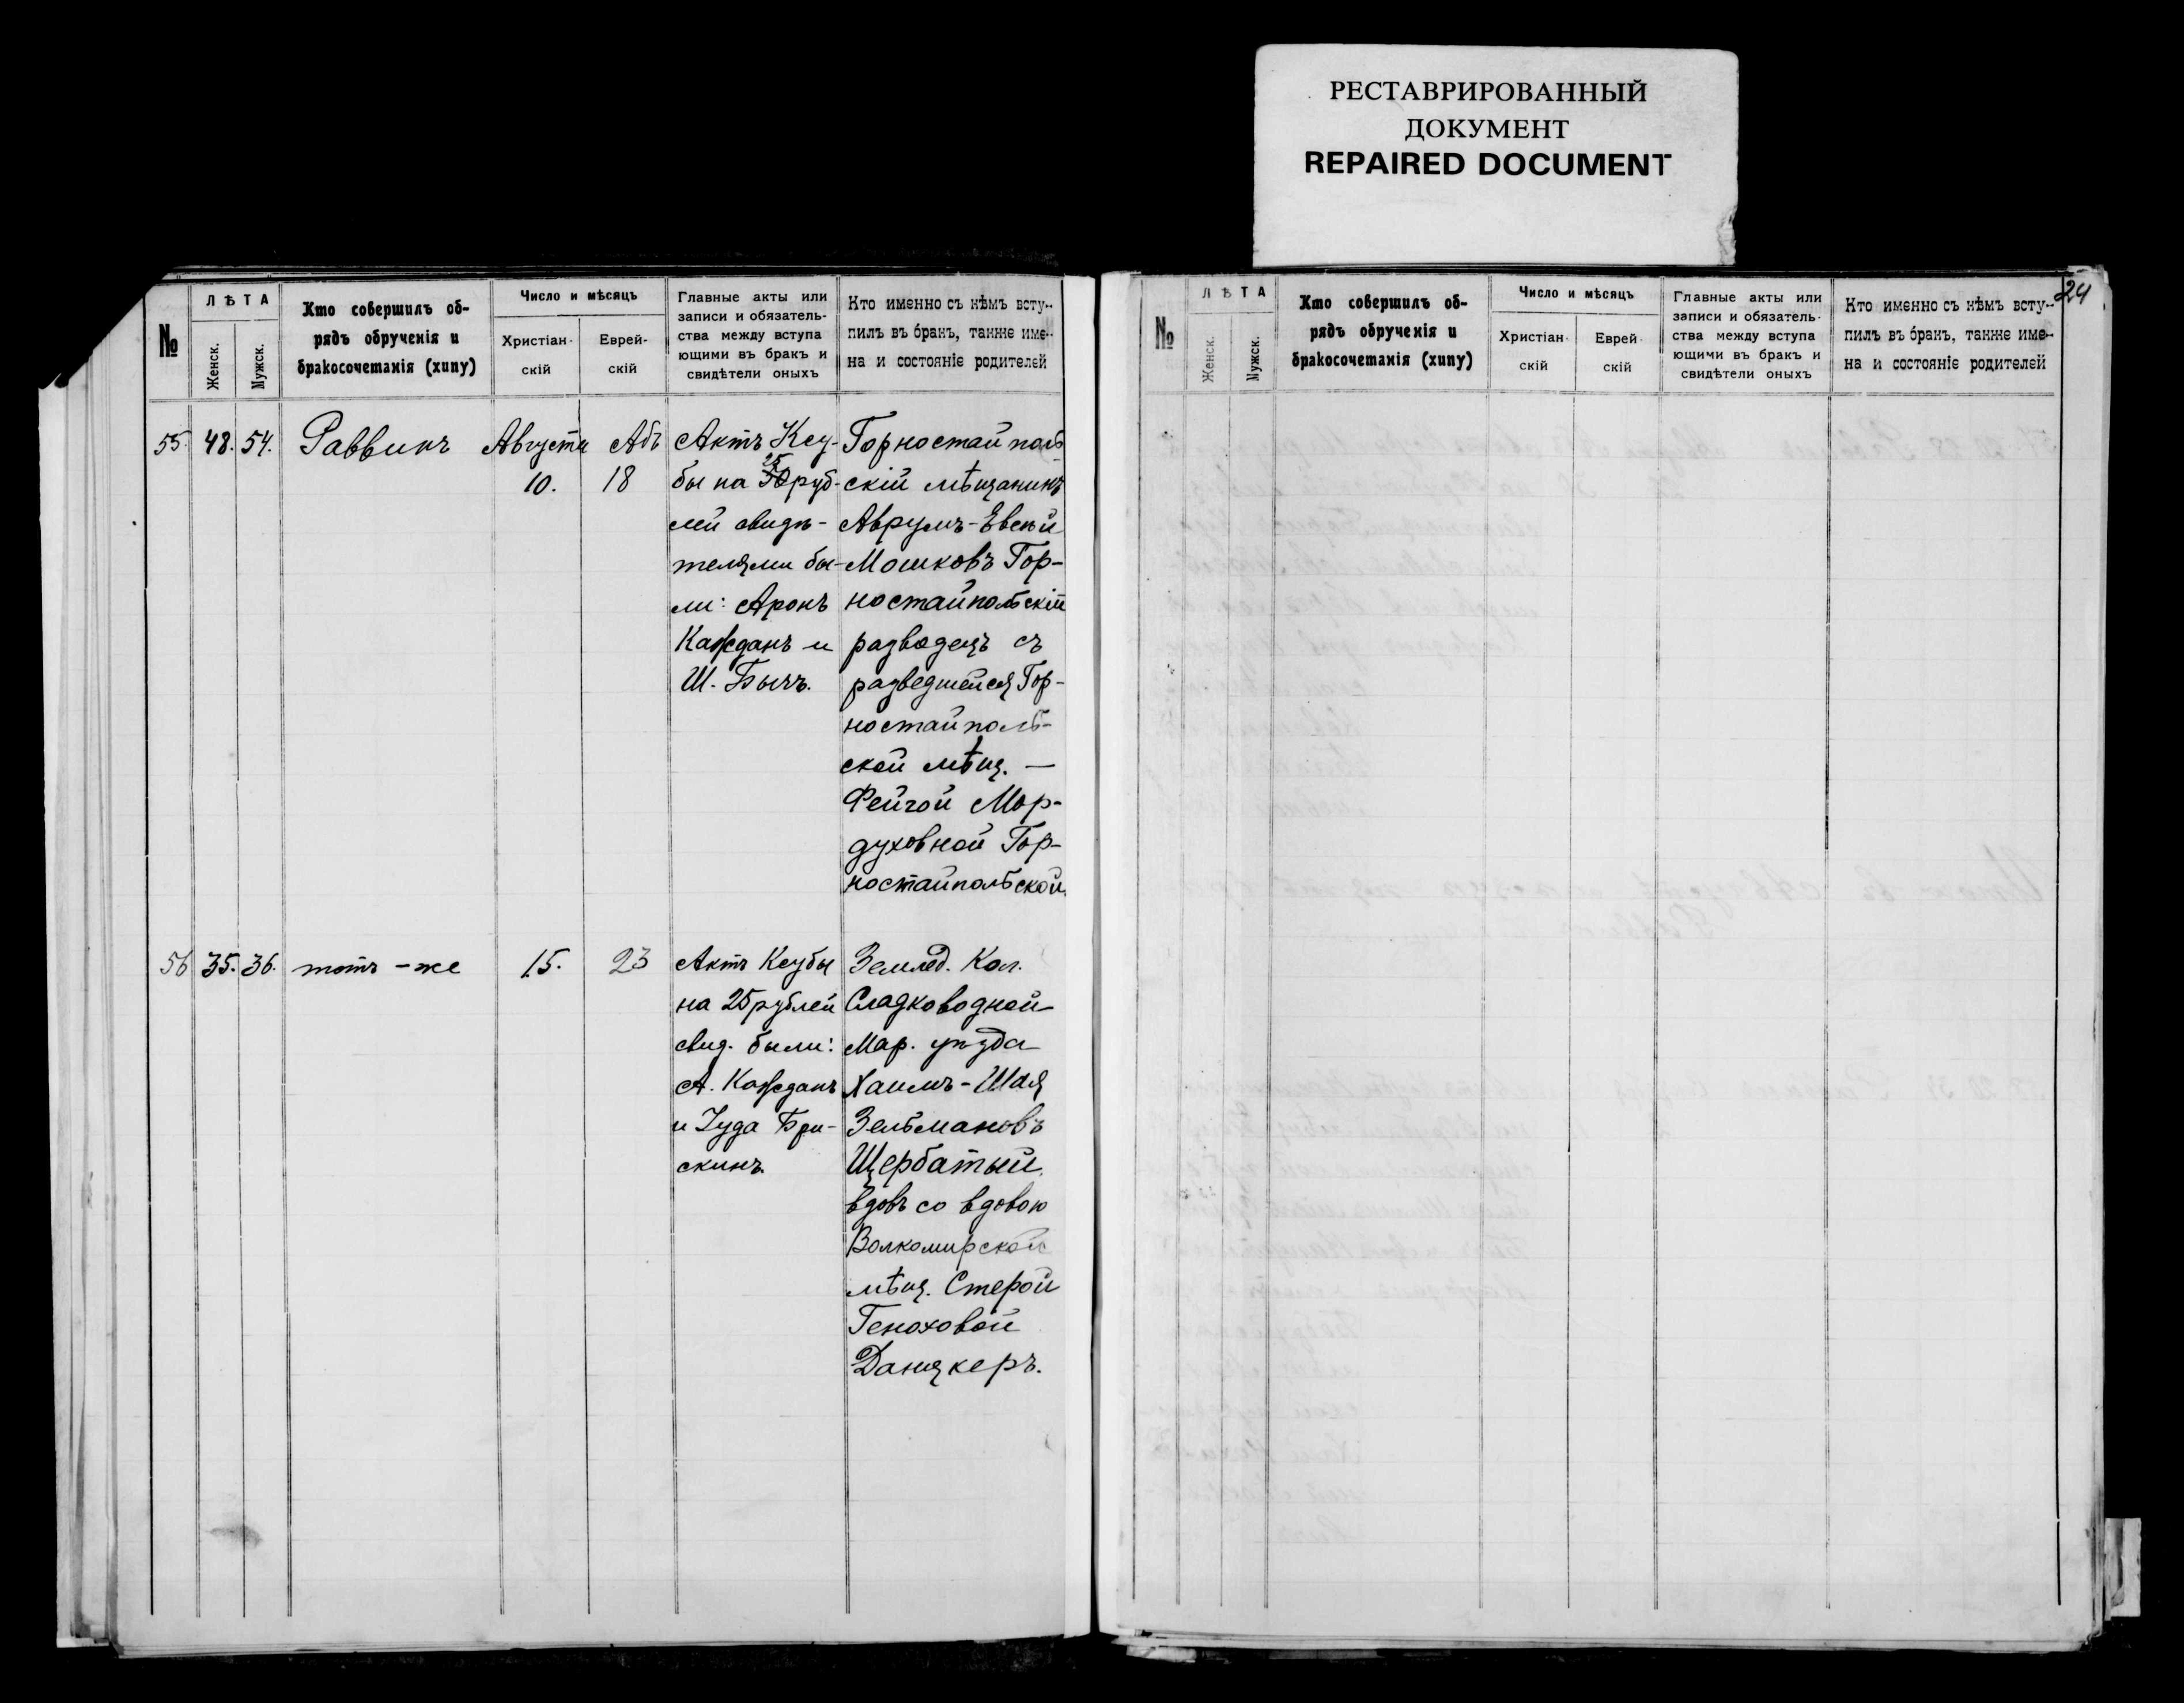 РЕСТАВРИРОВАННЫЙ
ДОКУМЕНТ
REPAIRED DOCUMENT
№
ЛѢТА
Женск.
Мужск.
Кто совершилъ об-
рядъ обрученія и
бракосочетанія (хипу)
Число и мѣсяцъ
Христіан-
скій
Еврей-
скій
Главные акты или
записи и обязатель-
ства между вступа
ющими въ бракъ и
свидѣтели оныхъ
Кто именно съ кѣмъ всту-
пилъ въ бракъ, также име-
на и состояніе родителей
55. 48. 54. Раввинъ Августа 10. Абъ 18
Актъ Кеу-
бы на 25 руб-
лей свидѣ-
телями бы-
ли: Аронъ
Кажданъ и
Ш. Бычъ.
Горностайполь
скій мѣщанинъ
Аврумъ-Евсѣй
Мошковъ Гор-
ностайпольскій
разводецъ съ
разведшейся Гор-
ностайполь-
ской мѣщ. —
Фейгой Мор-
духовной Гор-
ностайпольской.
56 35. 36. тотъ-же 15. 23
Актъ Кеубы
на 25 рублей
свид. были:
А. Кажданъ
и Іуда Бри-
скинъ.
Землед. Кол.
Сладководной
Мар. уѣзда
Хаимъ-Шая
Зельмановъ
Щербатый
вдовъ со вдовою
Волкомирской
мѣщ. Стерой
Геноховой
Данцкеръ.
24
№
ЛѢТА
Женск.
Мужск.
Кто совершилъ об-
рядъ обрученія и
бракосочетанія (хипу)
Число и мѣсяцъ
Христіан-
скій
Еврей-
скій
Главные акты или
записи и обязатель-
ства между вступа
ющими въ бракъ и
свидѣтели оныхъ
Кто именно съ кѣмъ всту-
пилъ въ бракъ, также име-
на и состояніе родителей